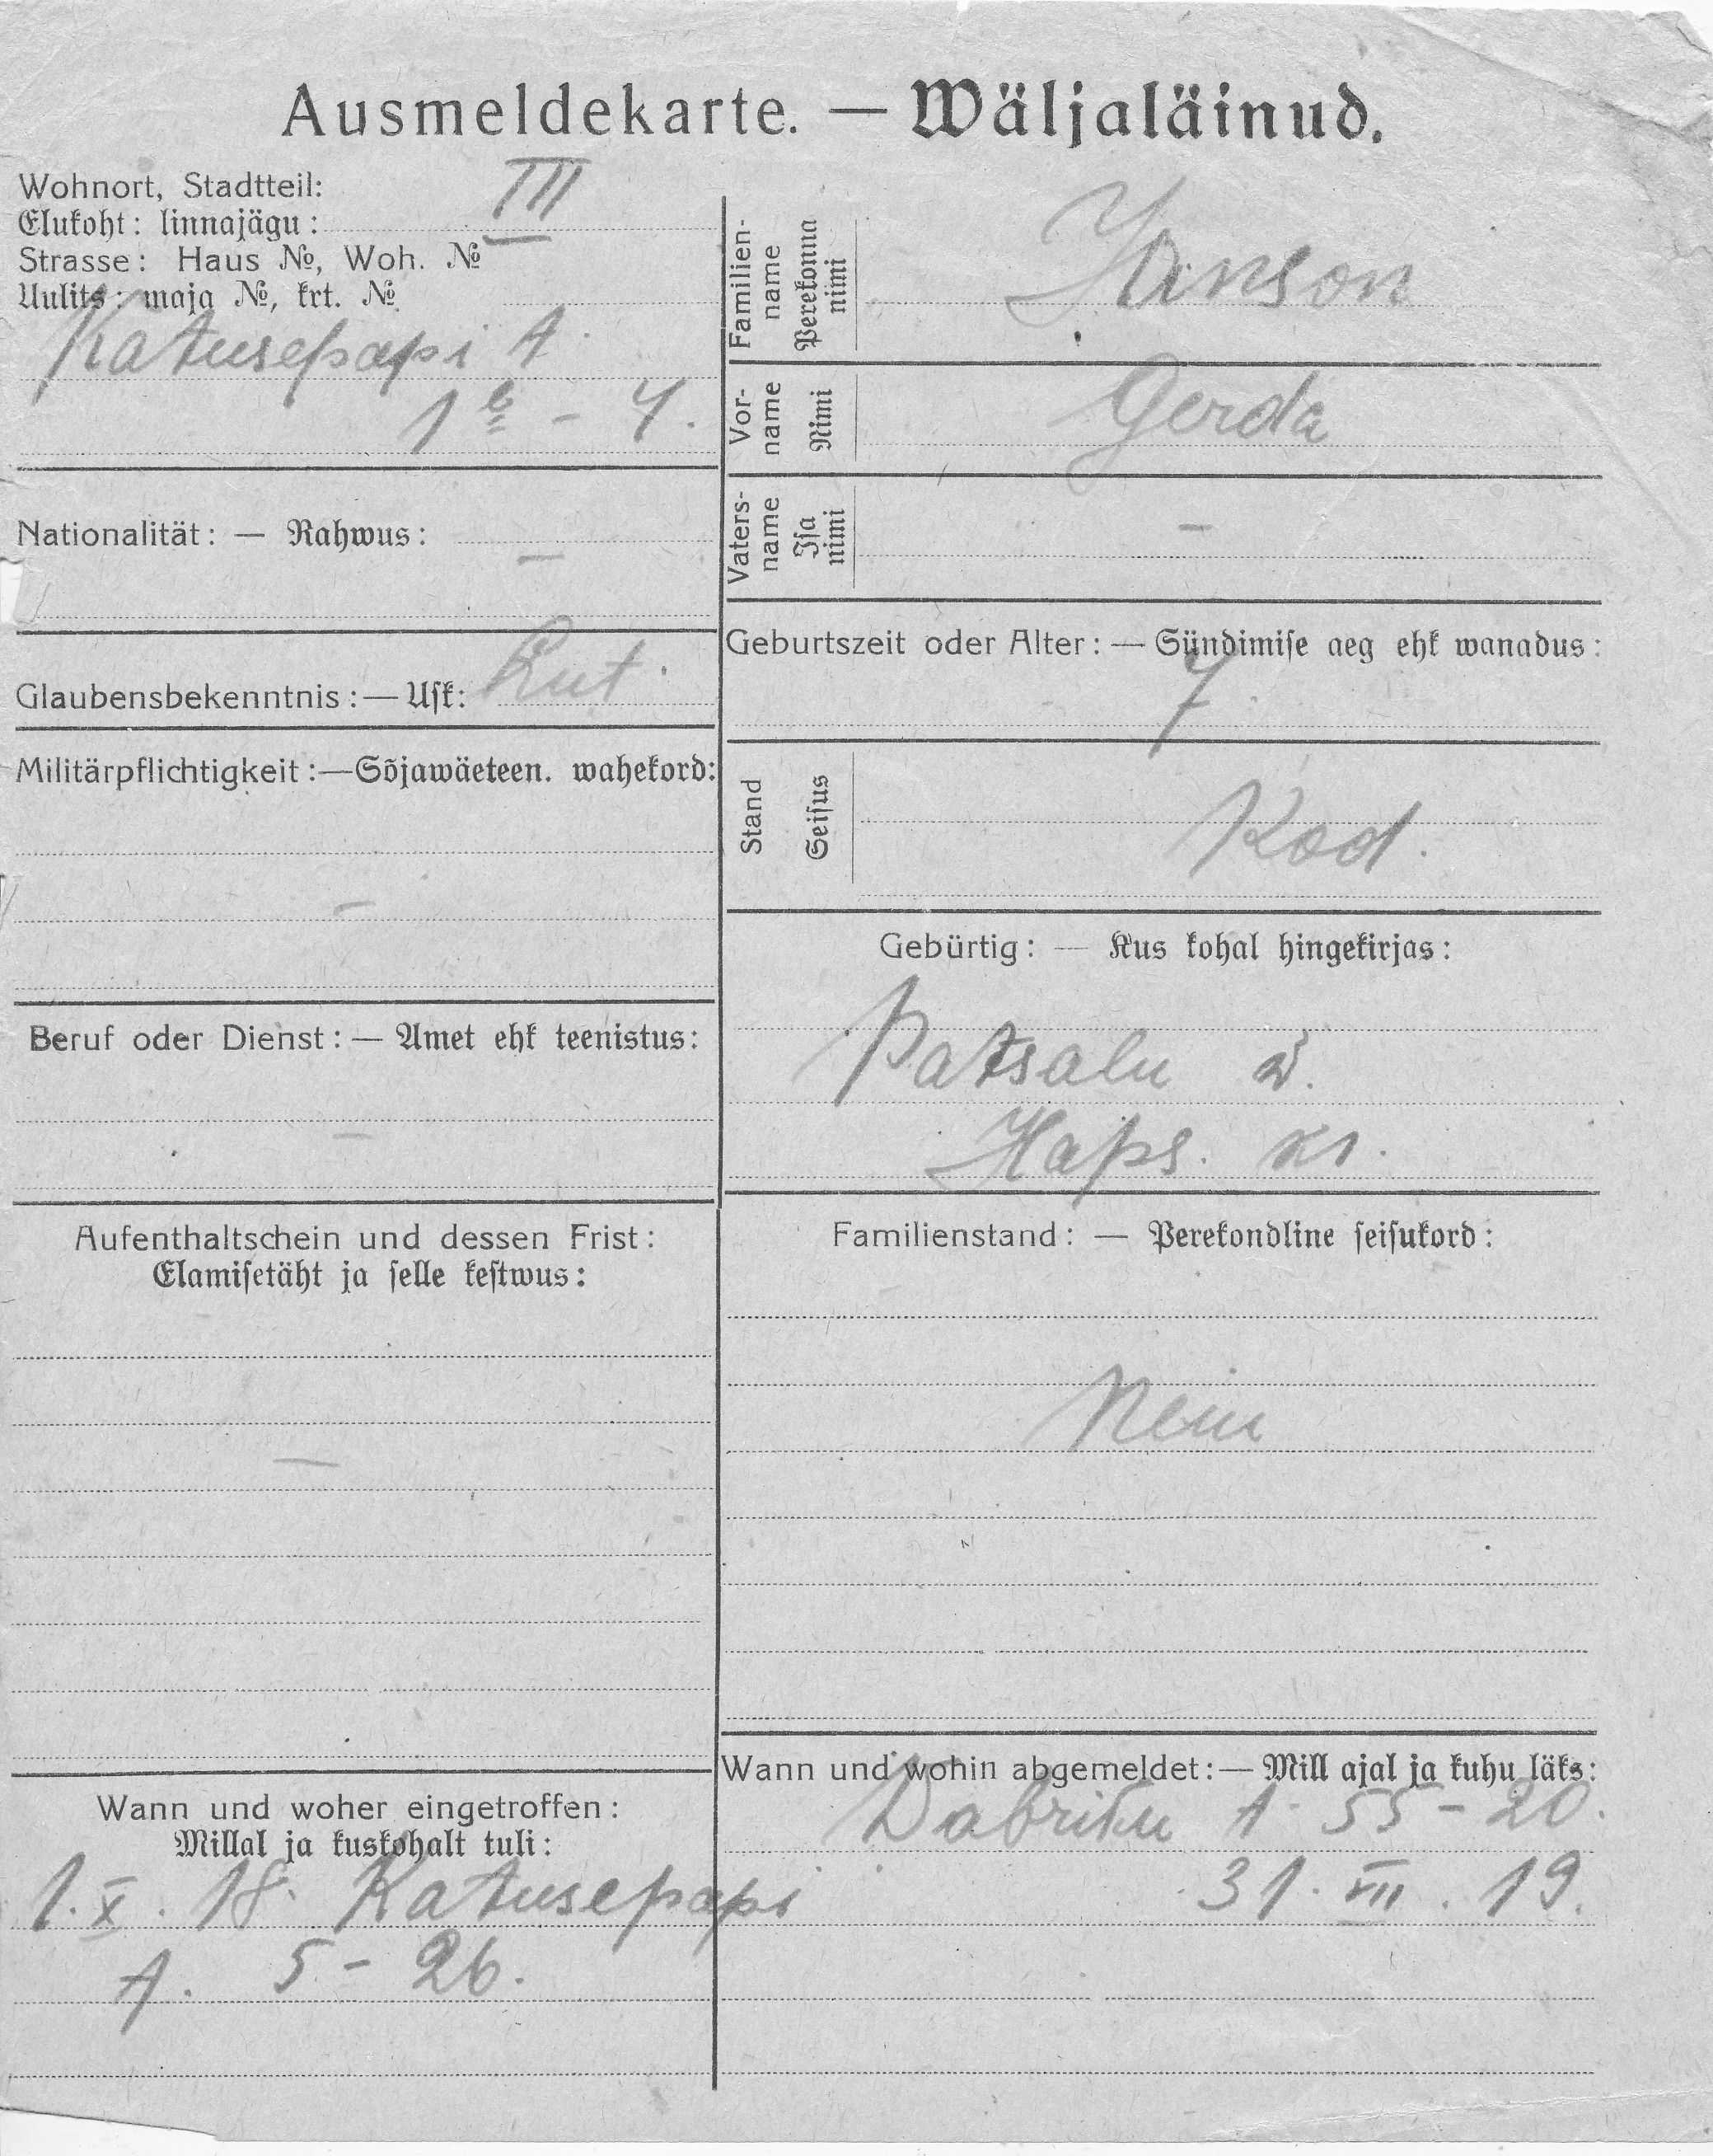 Ausmeldekarte. — Wäljaläinud.
Wohnort, Stadtteil:
Elukoht: linnajägu: III
Strasse: Haus №, Woh. №
Uulits: maja №, krt. №
Katusepapi t.
1 b - 4.
Nationalität: — Rahwus:
—
Glaubensbekenntnis: — Usk: Lut.
Militärpflichtigkeit: — Sõjawäeteen. wahekord:
—
Beruf oder Dienst: — Amet ehk teenistus:
—
Aufenthaltschein und dessen Frist:
Elamisetäht ja selle kestwus:
—
Wann und woher eingetroffen:
Millal ja kuskohalt tuli:
1. X. 18. Katusepapi
t. 5 - 26.
Familien-
name
Perekonna
nimi
Janson
Vor-
name
Nimi
Gerda
Vaters-
name
Isa
nimi
—
Geburtszeit oder Alter: — Sündimise aeg ehk wanadus:
7.
Stand
Seisus
Kod.
Gebürtig: — Kus kohal hingekirjas:
Patsalu w.
Haps. kr.
Familienstand: — Perekondline seisukord:
Nein
Wann und wohin abgemeldet: — Mill ajal ja kuhu läks:
Wabriku t. 55 - 20.
31. VII. 19.